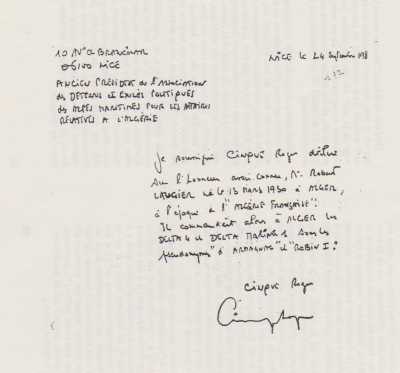 10 Av. BRANCOLAR
06100 NICE
NICE le 24 Septembre 198
ANCIEN PRÉSIDENT de l'ASSOCIATION
des DETENUS et EXILÉS POLITIQUES
des ALPES MARITIMES POUR LES AFFAIRES
RELATIVES A L'ALGÉRIE
Je soussigné CINPUÉ Roger déclare
sur l'honneur avoir connu, Mr. Robert
LAUGIER né le 13 MARS 1930 à ALGER,
à l'époque de l'"ALGÉRIE FRANÇAISE".
Il commandait alors à ALGER les
DELTA 4 et DELTA sous les
pseudonymes "d'ARTAGNAN" et "ROBIN I".
CINPUÉ Roger